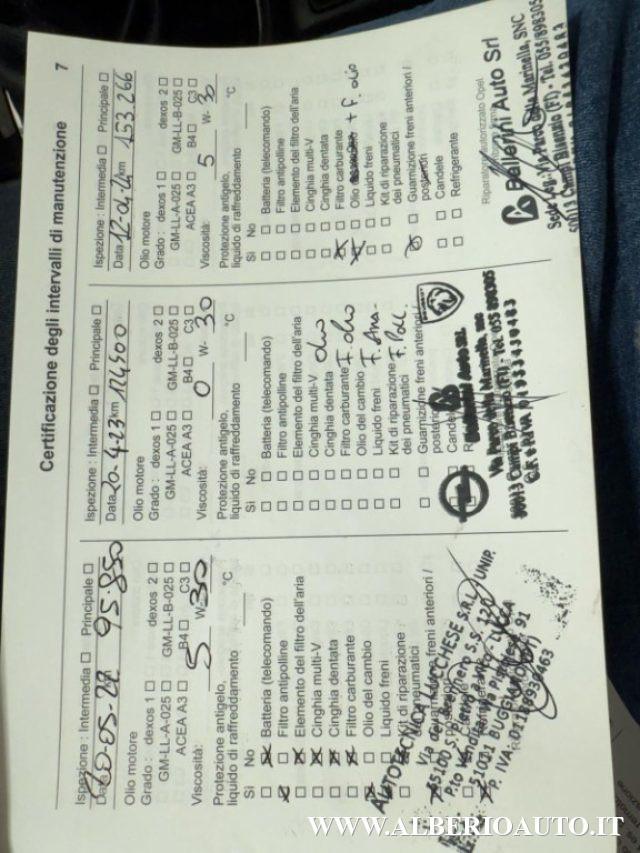 Certificazione degli intervalli di manutenzione 7
Ispezione : Intermedia ☐ Principale ☐
Data 95.850
Olio motore
Grado : dexos 1 ☐ dexos 2 ☐
GM-LL-A-025 ☐ GM-LL-B-025 ☐
ACEA A3 ☐ B4 ☐ C3 ☐
Viscosità: 5 W- 30
Protezione antigelo,
liquido di raffreddamento °C
Sì No
Batteria (telecomando)
Filtro antipolline
Elemento del filtro dell'aria
Cinghia multi-V
Cinghia dentata
Filtro carburante
Olio del cambio
Liquido freni
Kit di riparazione
dei pneumatici
Guarnizione freni anteriori /
AUTOTECNICA LUCCHESE S.R.L. UNIP.
51031 BUGGIANO
Ispezione : Intermedia ☐ Principale ☐
Data 20-4-23 km 124,500
Olio motore
Grado : dexos 1 ☐ dexos 2 ☐
GM-LL-A-025 ☐ GM-LL-B-025 ☐
ACEA A3 ☐ B4 ☐ C3 ☐
Viscosità: 0 W- 30
Protezione antigelo,
liquido di raffreddamento °C
Sì No
☐ ☐ Batteria (telecomando)
☐ ☐ Filtro antipolline
☐ ☐ Elemento del filtro dell'aria
☐ ☐ Cinghia multi-V olio
☐ ☐ Cinghia dentata
☐ ☐ Filtro carburante F. olio
☐ ☐ Olio del cambio
☐ ☐ Liquido freni F. Aria
☐ ☐ Kit di riparazione
dei pneumatici F. Poll.
☐ ☐ Guarnizione freni anteriori /
posteriori
☐ ☐ Candele
Via Parco della Marinella, snc
50013 Campi Bisenzio (FI) - Tel. 055 898305
Ispezione : Intermedia ☐ Principale ☐
Data 12-04-24 km 153.266
Olio motore
Grado : dexos 1 ☐ dexos 2 ☐
GM-LL-A-025 ☐ GM-LL-B-025 ☐
ACEA A3 ☐ B4 ☐ C3 ☐
Viscosità: 5 W- 30
Protezione antigelo,
liquido di raffreddamento °C
Sì No
☐ ☐ Batteria (telecomando)
☐ ☐ Filtro antipolline
☐ ☐ Elemento del filtro dell'aria
☐ ☐ Cinghia multi-V
☐ ☐ Cinghia dentata
Filtro carburante
Olio + F. olio
Liquido freni
☐ ☐ Kit di riparazione
dei pneumatici
Guarnizione freni anteriori /
posteriori
☐ ☐ Candele
☐ ☐ Refrigerante
Riparatore Autorizzato Opel
Ballerini Auto Srl
Sede Leg.: Via Parco della Marinella, SNC
50013 Campi Bisenzio (FI) - Tel. 055/898305
WWW.ALBERIOAUTO.IT